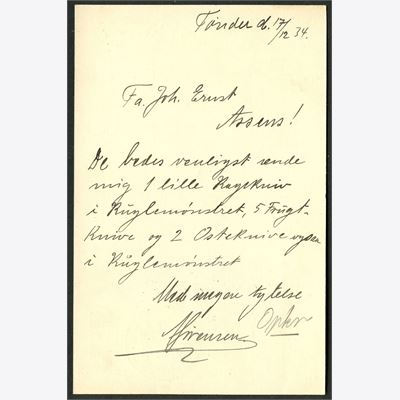 Tønder d. 17/12 34.
Fa. Joh. Ernst
Assens!
De bedes venligst sende
mig 1 lille Kagekniv
i Kuglemønstret, 5 Frugt-
knive og 2 Osteknive
i Kuglemønstret
Med megen
Sørensen